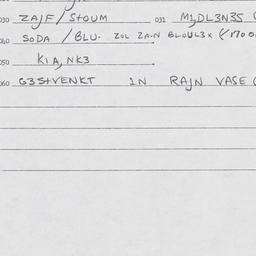 030 ZAJF/STOUM 031 M1DL3N35
040 SODA / BLU. ZOL ZAIN BLOUL3X
050 KIA, NK3
060 G3STVENKT IN RAJN VASE